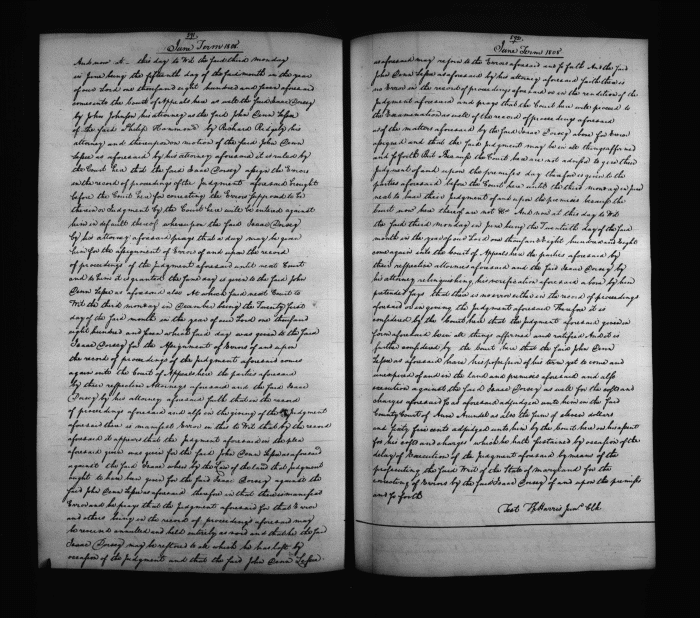 191.
June Term 1808.
And now at this day to Wit the third monday
in June being the fifteenth day of the said month in the year
of our Lord one thousand eight hundred and four aforesaid
comes into the Court of Appeals here as well the said Isaac Dorsey
by John Johnson his attorney as the said John Denn Lessee
of the said Philip Hammond by Richard Ridgely his
attorney and thereupon on motion of the said John Denn
Lessee as aforesaid by his attorney aforesaid it is ruled by
the Court here that the said Isaac Dorsey assign the Errors
in the record of proceedings of the Judgment aforesaid brought
before the Court here for correcting the Errors supposed to be
therein or Judgment by the Court here will be entered against
him in default thereof whereupon the said Isaac Dorsey
by his attorney aforesaid prays that a day may be given
him for the assignment of Errors of and upon the record
of proceedings of the Judgment aforesaid until next Court
and to him it is granted the same day is given to the said John
Denn Lessee as aforesaid also At which said next Court to
Wit the third monday in December being the Twenty first
day of the said month in the year of our Lord one thousand
eight hundred and four which said day was given to the said
Isaac Dorsey for the Assignment of Errors of and upon
the record of proceedings of the Judgment aforesaid comes
again into the Court of Appeals here the parties aforesaid
by their respective Attorneys aforesaid and the said Isaac
Dorsey by his attorney aforesaid saith that in the record
of proceedings aforesaid and also in the giving of the Judgment
aforesaid there is manifest Error in this to Wit that by the record
aforesaid it appears that the Judgment aforesaid in the plea
aforesaid given was given for the said John Denn Lessee as aforesaid
against the said Isaac when by the Law of the Land that Judgment
ought to have been given for the said Isaac Dorsey against the
said John Denn Lessee as aforesaid therefore in that there is manifest
Error and he prays that the Judgment aforesaid for that Error
and others being in the record of proceedings aforesaid may
be reversed annulled and held entirely as void and that he the said
Isaac Dorsey may be restored to all which he has lost by
occasion of the Judgment and that the said John Denn Lessee
192.
June Term 1808
as aforesaid may rejoin to the Errors aforesaid and so forth And the said
John Denn Lessee as aforesaid by his attorney aforesaid saith there is
no Error in the record of proceedings aforesaid or in the rendition of the
Judgment aforesaid and prays that the Court here will proceed to
the Examination as well of the record of proceedings aforesaid
as of the matters aforesaid by the said Isaac Dorsey above for Error
assigned and that the said Judgment may be in all things affirmed
and so forth But Because the Court here are not advised to give their
Judgment of and upon the premises day therefore is given to the
parties aforesaid before the Court here until the third monday in June
next to hear their Judgment of and upon the premises because the
Court now here thereof are not &c And now at this day to Wit
the third monday in June being the Twentieth day of the said
month in the year of our Lord one thousand Eight hundred and Eight
come again into the Court of Appeals here the parties aforesaid by
their respective attornies aforesaid and the said Isaac Dorsey by
his attorney relinquishing his assignation aforesaid above by him
pretended says that there is no error either in the record of proceedings
aforesaid or in giving the Judgment aforesaid Therefore it is
considered by the Court here that the Judgment aforesaid given in
form aforesaid be in all things affirmed and ratified And it is
further considered by the Court here that the said John Denn
Lessee as aforesaid have his possession of his term yet to come and
unexpired of and in the Land and premises aforesaid and also
execution against the said Isaac Dorsey as well for the costs and
charges aforesaid so as aforesaid adjudged unto him in the said
County Court of Anne Arundel as also the sum of eleven dollars
and sixty five cents adjudged unto him by the Court here on his assent
for his costs and charges which he hath sustained by occasion of the
delay of Execution of the Judgment aforesaid by means of the
prosecuting the said Writ of the State of Maryland for the
correcting of Errors by the said Isaac Dorsey of and upon the premises
and so forth
Test Th Harris Junr Clk